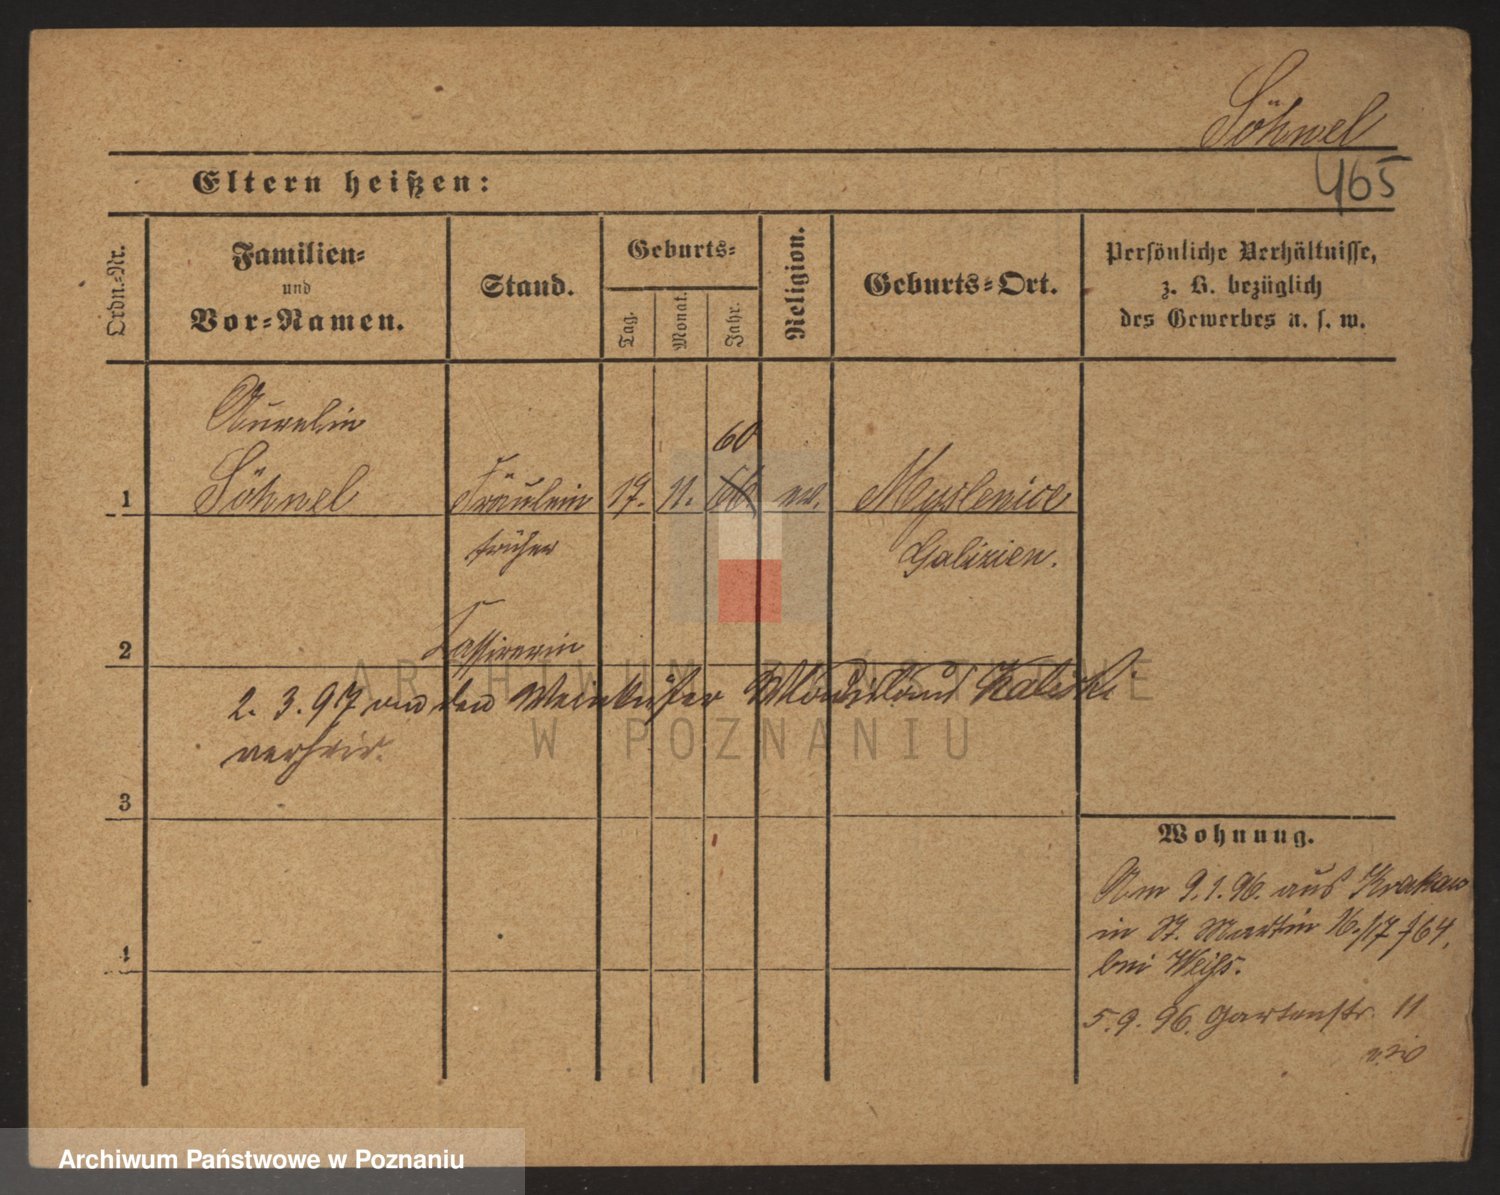 Söhnel
465
Eltern heißen:
Ordn.-Nr.
Familien-
und
Vor-Namen.
Stand.
Geburts-
Tag.
Monat.
Jahr.
Religion.
Geburts-Ort.
Persönliche Verhältnisse,
z. B. bezüglich
des Gewerbes u. s. w.
Aurelie
60
1 Söhnel Fräulein 17. 11. 66. ev. Myslenice
früher Galizien.
2 Cassirerin
2. 3. 97 an den Weinküfer Kaliski
verheir.
3
Wohnung.
Vom 9.1.96. aus Krakau
in St. Martin 16/17 f 64,
4 bei Weiss.
5.9.96. Gartenstr. 11
ARCHIWUM PAŃSTWOWE
W POZNANIU
Archiwum Państwowe w Poznaniu